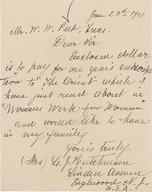 June 28th 1911
Mr. W. W. Peet, Treas.
Dear Sir
Enclosed dollar
is to pay for one years subscrip
tion to "The Orient" which I
have just read about in
"Womans Work for Woman"
and would like to have
in my family
Yours truly
(Mrs) L. J. Hutchinson
Linden Avenue
Englewood N. J.
U.S.A.